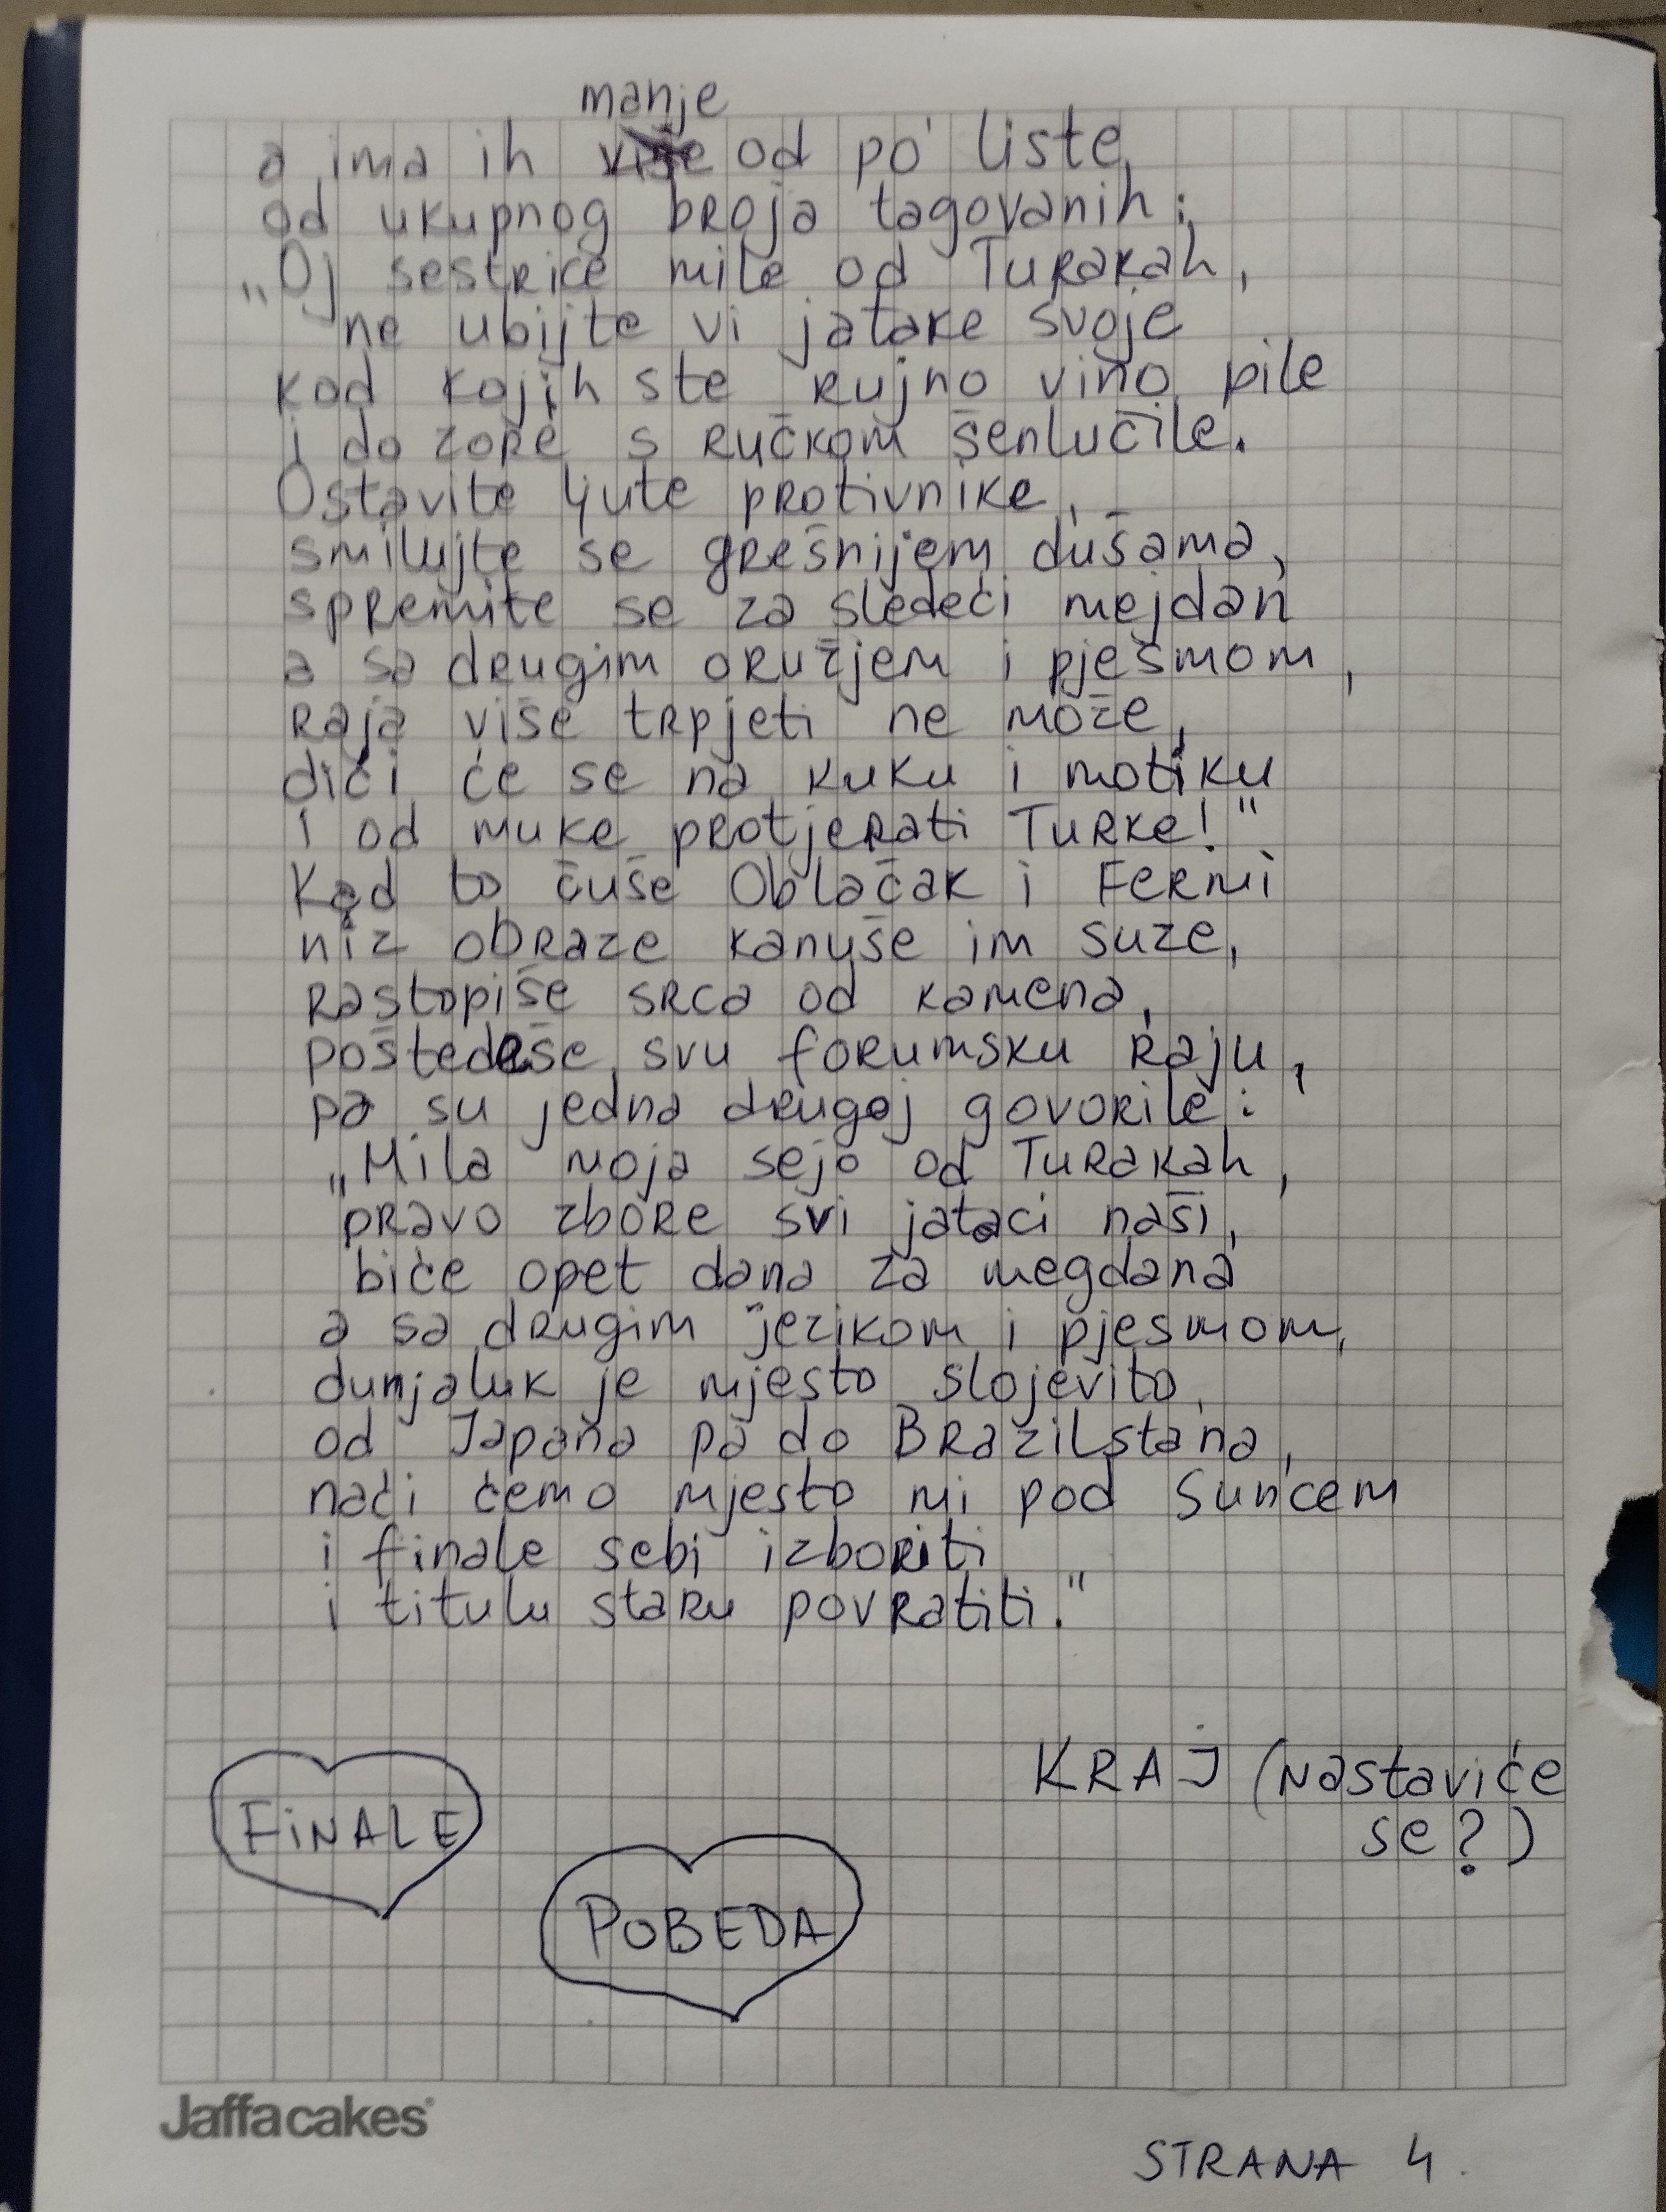 manje
a ima ih više od po' liste,
od ukupnog broja tagovanih:
„Oj sestrice mile od Turakah,
ne ubijte vi jatake svoje
kod kojih ste rujno vino pile
i do zore s ručkom šenlučile.
Ostavite ljute protivnike,
smilujte se grešnijem dušama,
spremite se za sledeći mejdan
a sa drugim oružjem i pjesmom,
raja više trpjeti ne može,
dići će se na kuku i motiku
i od muke protjerati Turke!"
Kad to čuše Oblačak i Fermi
niz obraze kanuše im suze,
rastopiše srca od kamena,
poštedeše svu forumsku raju,
pa su jedna drugoj govorile:
„Mila moja sejo od Turakah,
pravo zbore svi jataci naši,
biće opet dana za megdana
a sa drugim "jezikom i pjesmom,
dunjaluk je mjesto slojevito,
od Japana pa do Brazilstana,
naći ćemo mjesto mi pod Suncem
i finale sebi izboriti
i titulu staru povratiti."
KRAJ (Nastaviće
se?)
FINALE
POBEDA
Jaffa cakes
STRANA 4.